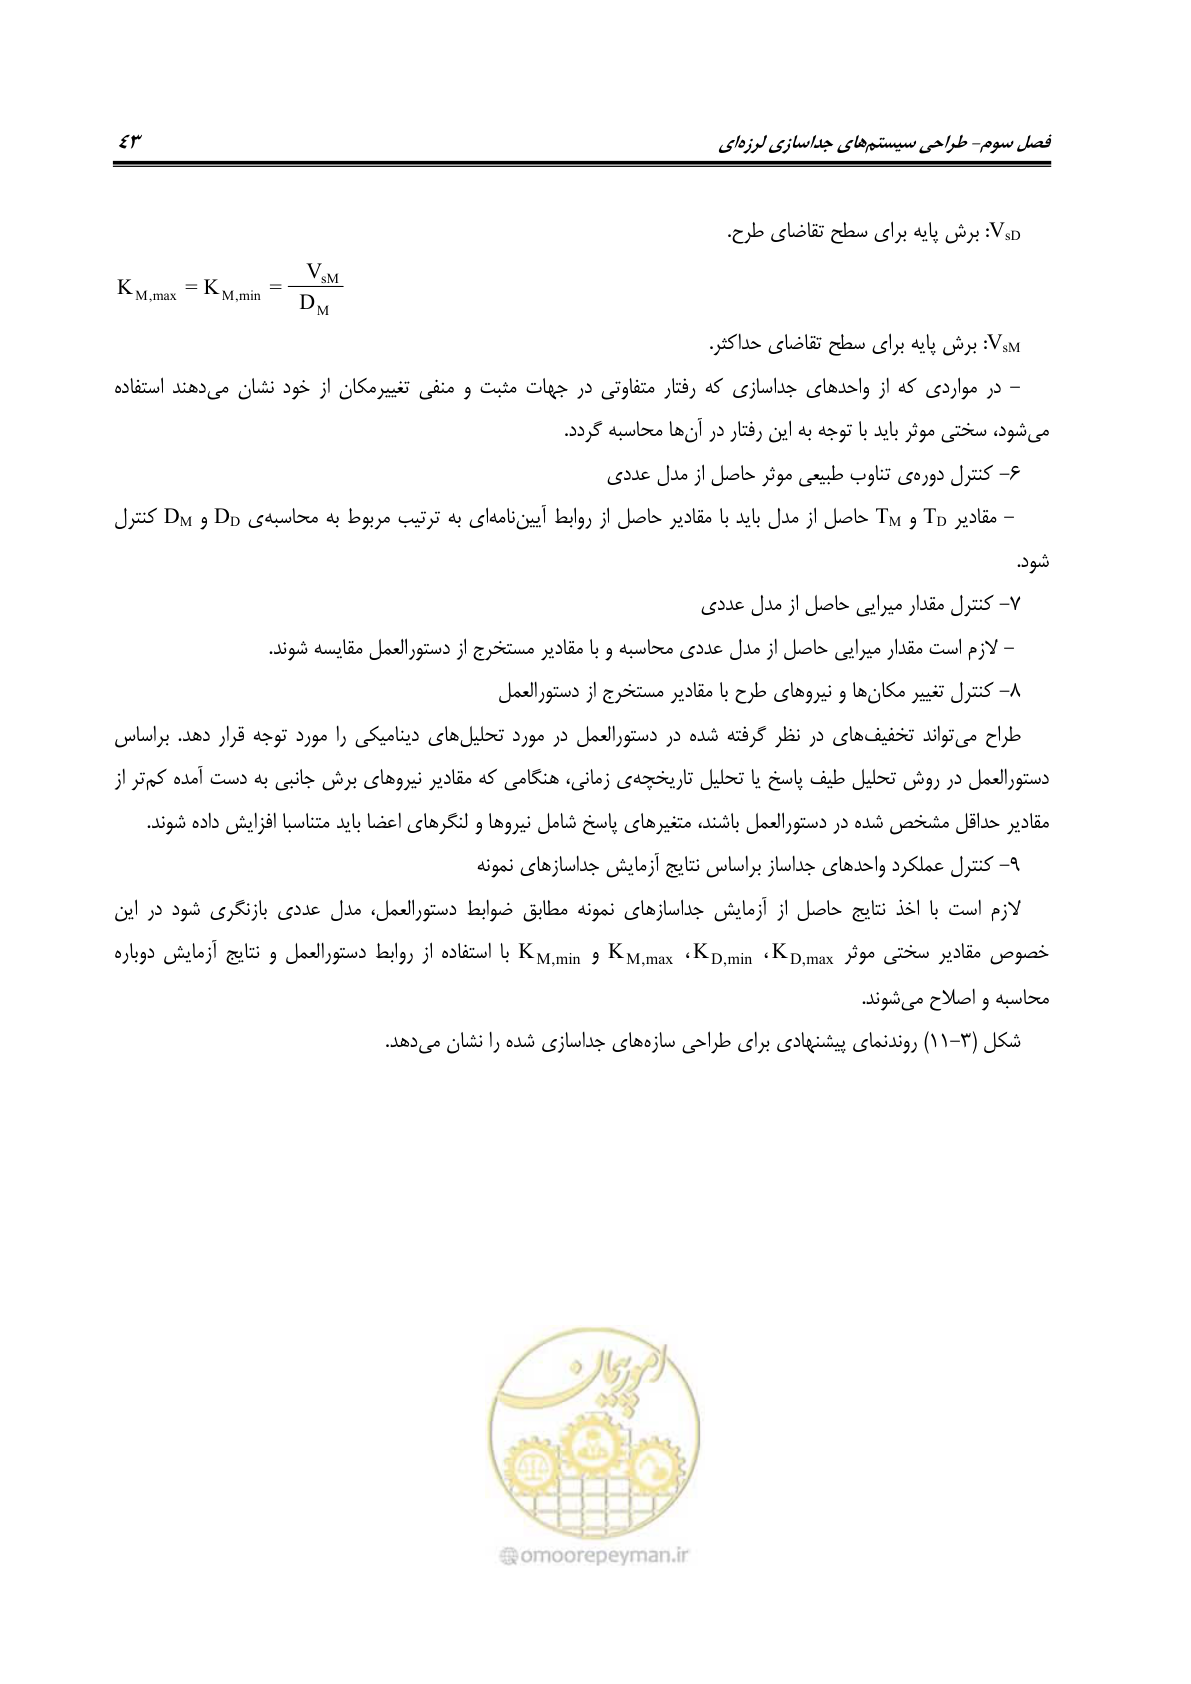 فصل سوم- طراحی سیستم‌های جداسازی لرزه‌ای ٤٣
V_sD: برش پایه برای سطح تقاضای طرح.
K_M,max = K_M,min = V_sM / D_M
V_sM: برش پایه برای سطح تقاضای حداکثر.
– در مواردی که از واحدهای جداسازی که رفتار متفاوتی در جهات مثبت و منفی تغییرمکان از خود نشان می‌دهند استفاده
می‌شود، سختی موثر باید با توجه به این رفتار در آن‌ها محاسبه گردد.
۶- کنترل دوره‌ی تناوب طبیعی موثر حاصل از مدل عددی
– مقادیر T_D و T_M حاصل از مدل باید با مقادیر حاصل از روابط آیین‌نامه‌ای به ترتیب مربوط به محاسبه‌ی D_D و D_M کنترل
شود.
۷- کنترل مقدار میرایی حاصل از مدل عددی
– لازم است مقدار میرایی حاصل از مدل عددی محاسبه و با مقادیر مستخرج از دستورالعمل مقایسه شوند.
۸- کنترل تغییر مکان‌ها و نیروهای طرح با مقادیر مستخرج از دستورالعمل
طراح می‌تواند تخفیف‌های در نظر گرفته شده در دستورالعمل در مورد تحلیل‌های دینامیکی را مورد توجه قرار دهد. براساس
دستورالعمل در روش تحلیل طیف پاسخ یا تحلیل تاریخچه‌ی زمانی، هنگامی که مقادیر نیروهای برش جانبی به دست آمده کم‌تر از
مقادیر حداقل مشخص شده در دستورالعمل باشند، متغیرهای پاسخ شامل نیروها و لنگرهای اعضا باید متناسبا افزایش داده شوند.
۹- کنترل عملکرد واحدهای جداساز براساس نتایج آزمایش جداسازهای نمونه
لازم است با اخذ نتایج حاصل از آزمایش جداسازهای نمونه مطابق ضوابط دستورالعمل، مدل عددی بازنگری شود در این
خصوص مقادیر سختی موثر K_D,max ، K_D,min، K_M,max و K_M,min با استفاده از روابط دستورالعمل و نتایج آزمایش دوباره
محاسبه و اصلاح می‌شوند.
شکل (۳-۱۱) روندنمای پیشنهادی برای طراحی سازه‌های جداسازی شده را نشان می‌دهد.
امور پیمان
omoorepeyman.ir